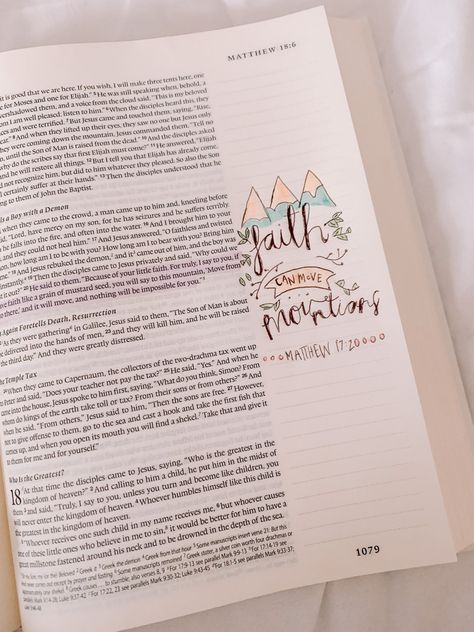 MATTHEW 18:6
it is good that we are here. If you wish, I will make three tents here, one
for Moses and one for Elijah." 5 He was still speaking when, behold, a
overshadowed them, and a voice from the cloud said, "This is my beloved
I am well pleased; listen to him." 6 When the disciples heard this, they
and were terrified. 7 But Jesus came and touched them, saying, "Rise,
fear." 8 And when they lifted up their eyes, they saw no one but Jesus only.
they were coming down the mountain, Jesus commanded them, "Tell no
until the Son of Man is raised from the dead." 10 And the disciples asked
why do the scribes say that first Elijah must come?" 11 He answered, "Elijah
and he will restore all things. 12 But I tell you that Elijah has already come,
not recognize him, but did to him whatever they pleased. So also the Son
certainly suffer at their hands." 13 Then the disciples understood that he
ing to them of John the Baptist.
ls a Boy with a Demon
when they came to the crowd, a man came up to him and, kneeling before
"Lord, have mercy on my son, for he has seizures and he suffers terribly.
he falls into the fire, and often into the water. 16 And I brought him to your
and they could not heal him." 17 And Jesus answered, "O faithless and twisted
n, how long am I to be with you? How long am I to bear with you? Bring him
me." 18 And Jesus rebuked the demon, and it came out of him, and the boy was
instantly. 19 Then the disciples came to Jesus privately and said, "Why could we
it out?" 20 He said to them, "Because of your little faith. For truly, I say to you, if
faith like a grain of mustard seed, you will say to this mountain, 'Move from
there,' and it will move, and nothing will be impossible for you."
Again Foretells Death, Resurrection
As they were gathering in Galilee, Jesus said to them, "The Son of Man is about
be delivered into the hands of men, 23 and they will kill him, and he will be raised
the third day." And they were greatly distressed.
The Temple Tax
When they came to Capernaum, the collectors of the two-drachma tax went up
to Peter and said, "Does your teacher not pay the tax?" 25 He said, "Yes." And when he
came into the house, Jesus spoke to him first, saying, "What do you think, Simon? From
whom do kings of the earth take toll or tax? From their sons or from others?" 26 And
when he said, "From others," Jesus said to him, "Then the sons are free. 27 However,
not to give offense to them, go to the sea and cast a hook and take the first fish that
comes up, and when you open its mouth you will find a shekel. Take that and give it
to them for me and for yourself."
Who Is the Greatest?
18 At that time the disciples came to Jesus, saying, "Who is the greatest in the
kingdom of heaven?" 2 And calling to him a child, he put him in the midst of
them 3 and said, "Truly, I say to you, unless you turn and become like children, you
will never enter the kingdom of heaven. 4 Whoever humbles himself like this child is
the greatest in the kingdom of heaven.
5 "Whoever receives one such child in my name receives me, 6 but whoever causes
one of these little ones who believe in me to sin, it would be better for him to have a
great millstone fastened around his neck and to be drowned in the depth of the sea.
faith
CAN MOVE
mountains
MATTHEW 17:20
1079